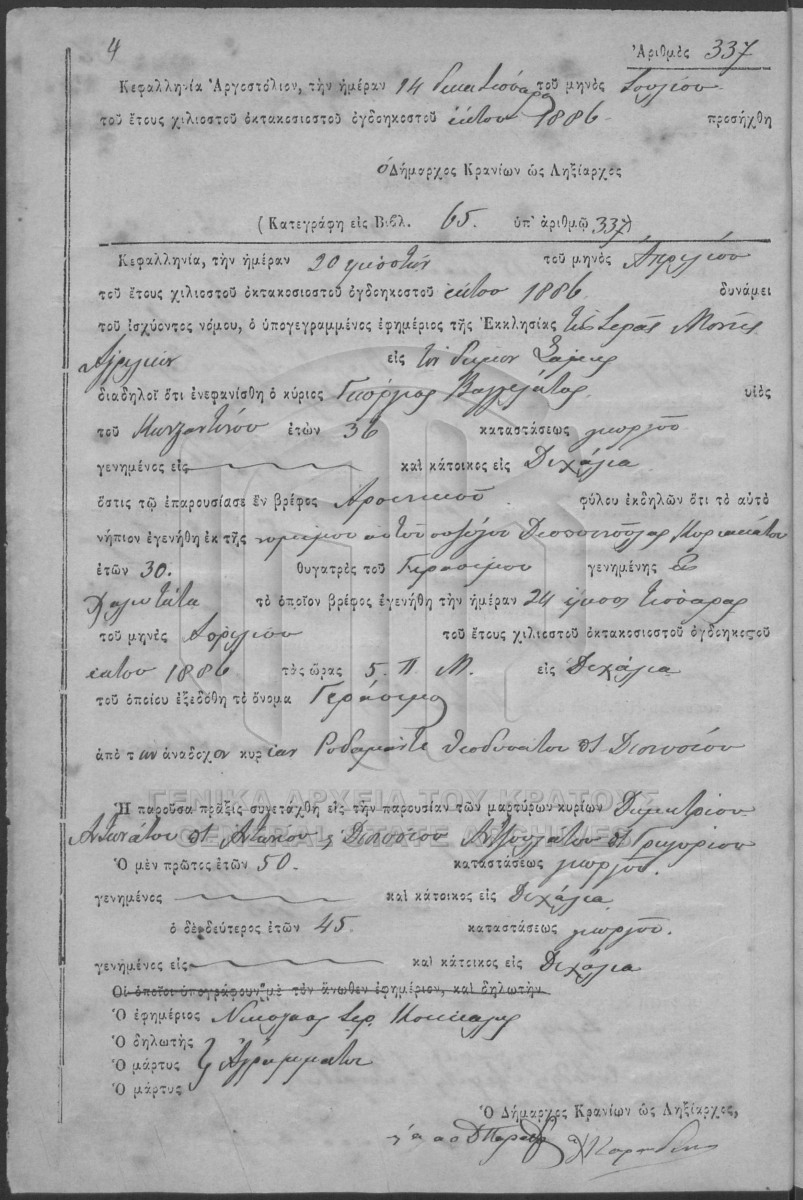 4
Ἀριθμὸς 337
Κεφαλληνία Ἀργοστόλιον, τὴν ἡμέραν 14 δεκατέσσαρα τοῦ μηνὸς Ἰουλίου
τοῦ ἔτους χιλιοστοῦ ὀκτακοσιοστοῦ ὀγδοηκοστοῦ ἕκτου 1886 προσήχθη
ὁ Δήμαρχος Κρανίων ὡς Ληξίαρχος
(Κατεγράφη εἰς Βιβλ. 65. ὑπ' ἀριθμῷ 337)
Κεφαλληνία, τὴν ἡμέραν 20 εικοστήν τοῦ μηνὸς Ἀπριλίου
τοῦ ἔτους χιλιοστοῦ ὀκτακοσιοστοῦ ὀγδοηκοστοῦ ἕκτου 1886 δυνάμει
τοῦ ἰσχύοντος νόμου, ὁ ὑπογεγραμμένος ἐφημέριος τῆς Ἐκκλησίας της Ιεράς Μονής
Αγριλίων εἰς τον δήμον Σάμης
διαδηλοῖ ὅτι ἐνεφανίσθη ὁ κύριος Γεώργιος Βαγγελάτος υἱὸς
τοῦ Κωνσταντίνου ἐτῶν 36 καταστάσεως γεωργού
γενημένος εἰς καὶ κάτοικος εἰς Διχάλια
ὅστις τῷ ἐπαρουσίασε ἓν βρέφος Αρσενικού φύλου ἐκδηλῶν ὅτι τὸ αὐτὸ
νήπιον ἐγενήθη ἐκ τῆς νομίμου αυτού συζύγου Δεσποινούλας Κυριακάτου
ἐτῶν 30. θυγατρὸς τοῦ Γερασίμου γενημένης εις
Χαλιωτάτα τὸ ὁποῖον βρέφος ἐγενήθη τὴν ἡμέραν 24 είκοσι τέσσαρας
τοῦ μηνὸς Απριλίου τοῦ ἔτους χιλιοστοῦ ὀκτακοσιοστοῦ ὀγδοηκοστοῦ
έκτου 1886 τὰς ὥρας 5. Π. Μ. εἰς Διχάλια
τοῦ ὁποίου ἐξεδόθη τὸ ὄνομα Γεράσιμο
ἀπὸ την ἀνάδοχον κυρίαν Θεοδοσάτου Διονυσίου
Ἡ παροῦσα πρᾶξις συνετάχθη εἰς τὴν παρουσίαν τῶν μαρτύρων κυρίων Δημητρίου
Αντωνάτου Αντωνίου & Διονυσίου Γρηγορίου
Ὁ μὲν πρῶτος ἐτῶν 50. καταστάσεως γεωργού.
γενημένος καὶ κάτοικος εἰς Διχάλια
ὁ δὲ δεύτερος ἐτῶν 45 καταστάσεως γεωργού.
γενημένος εἰς καὶ κάτοικος εἰς Διχάλια
Οἱ ὁποῖοι ὑπογράφουν μὲ τὸν ἄνωθεν ἐφημέριον, καὶ δηλωτήν
Ὁ ἐφημέριος Νικόλαος Ιερ.
Ὁ δηλωτὴς
Ὁ μάρτυς Αγράμματοι
Ὁ μάρτυς
Ὁ Δήμαρχος Κρανίων ὡς Ληξίαρχος,
ΓΕΝΙΚΑ ΑΡΧΕΙΑ ΤΟΥ ΚΡΑΤΟΥΣ
GENERAL STATE ARCHIVES